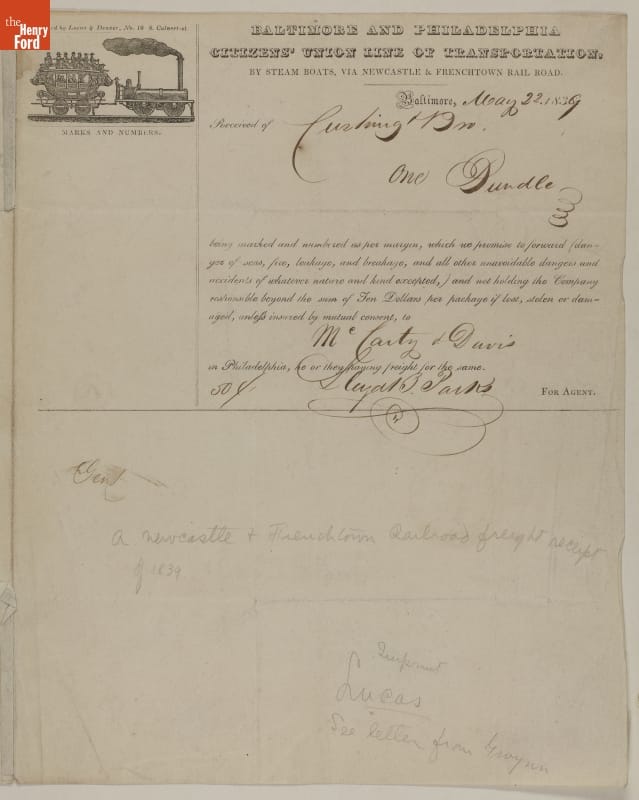 the
Henry
Ford
d by Lucas & Deaver, No. 18 S. Calvert-st
MARKS AND NUMBERS.
BALTIMORE AND PHILADELPHIA
CITIZENS' UNION LINE OF TRANSPORTATION,
BY STEAM BOATS, VIA NEWCASTLE & FRENCHTOWN RAIL ROAD.
Baltimore, May 22 1839
Received of Cushing & Bro.
One Bundle
being marked and numbered as per margin, which we promise to forward (dan-
ger of seas, fire, leakage, and breakage, and all other unavoidable dangers and
accidents of whatever nature and kind excepted,) and not holding the Company
responsible beyond the sum of Ten Dollars per package if lost, stolen or dam-
aged, unless insured by mutual consent, to
Mc Carty & Davis
in Philadelphia, he or they paying freight for the same.
50 Lloyd B. Parks FOR AGENT.
Gent
A Newcastle & Frenchtown Railroad freight receipt
of 1839
Imprint
Lucas
See letter from Gwynn